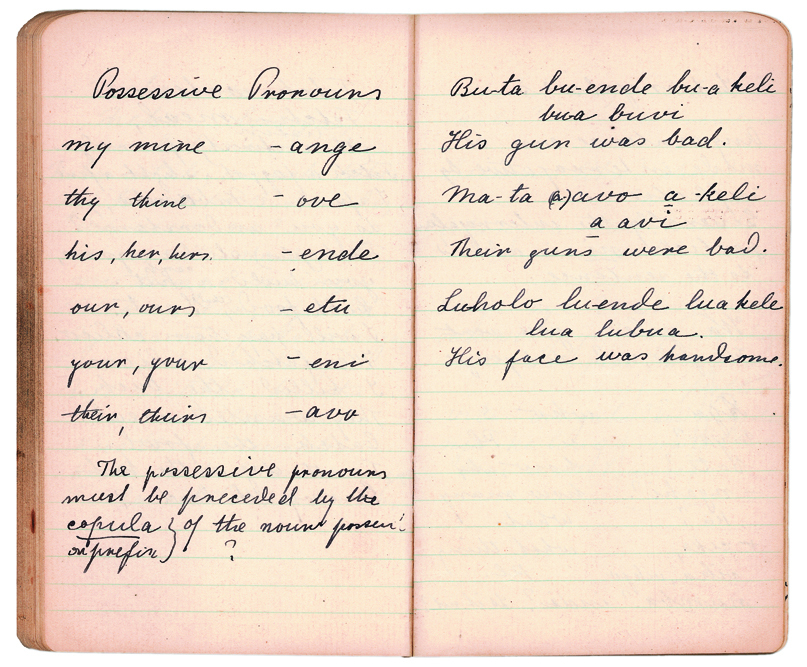 Possessive Pronouns
my mine -ange
thy thine - ove
his, her, hers. - ende
our, ours - etu
your, your - eni
their, theirs - avo
The possessive pronouns
must be preceded by the
copula } of the noun possess
or prefix } ?
Bu-ta bu-ende bu-a keli
bua buvi
His gun was bad.
Ma-ta (a)avo a-keli
a avi
Their guns were bad.
Luholo lu-ende lua kele
lua lubua.
His face was handsome.